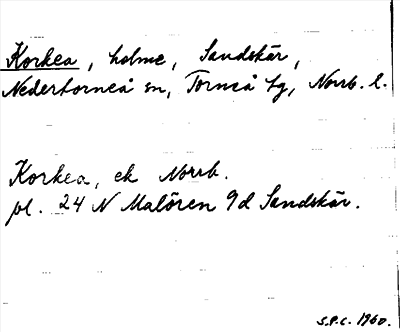 Korkea, holme, Sandskär,
Nedertorneå sn, Torneå tg, Norrb. l.
Korkea, ek Norrb.
pl. 24 N Malören 9d Sandskär.
S.P.C. 1960.